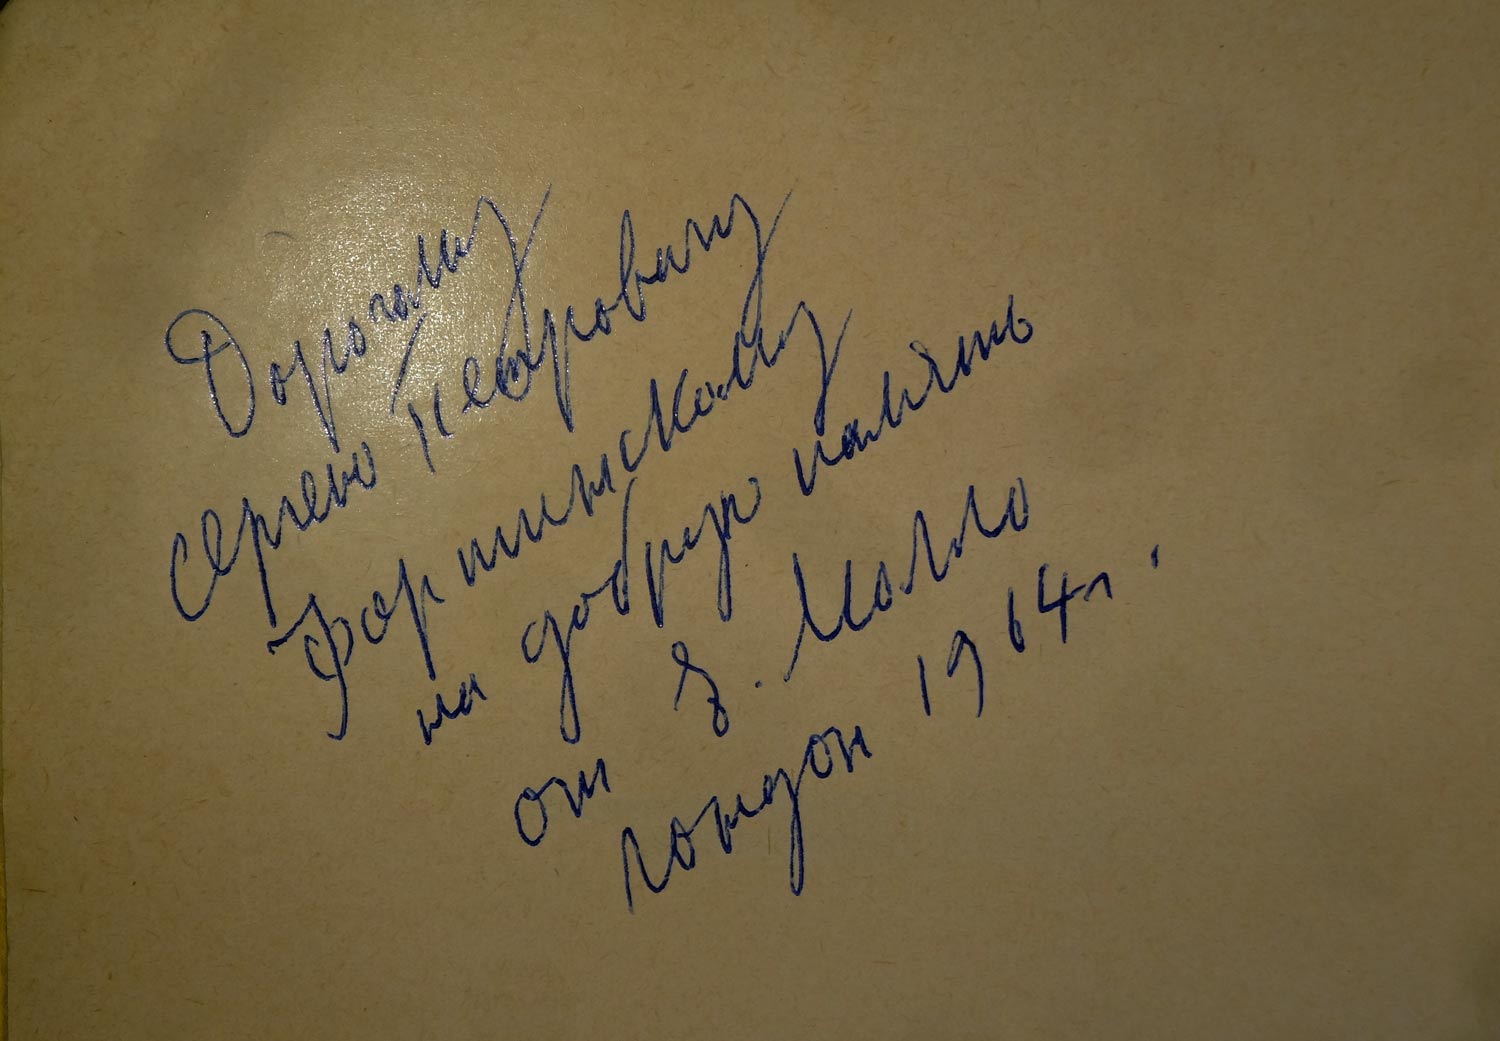 Дорогому
Сергею Петровичу
Фортинскому
на добрую память
от Е. Молло
Лондон 1964 г.